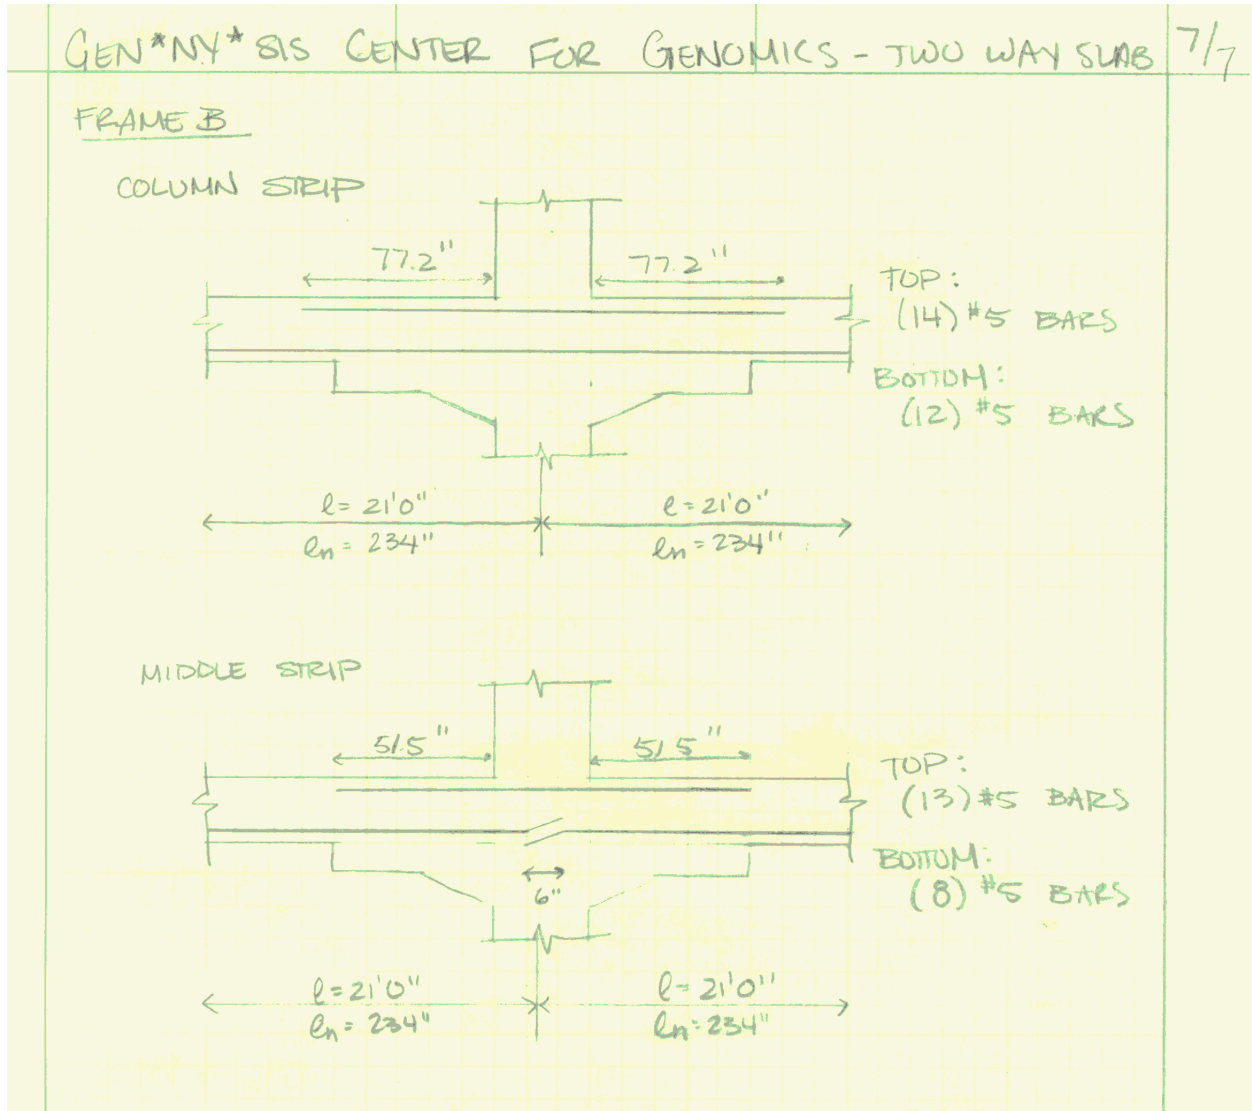 GEN*NY*SIS CENTER FOR GENOMICS - TWO WAY SLAB 7/7
FRAME B
COLUMN STRIP
77.2" 77.2"
TOP:
(14) #5 BARS
BOTTOM:
(12) #5 BARS
l = 21'0" l = 21'0"
ln = 234" ln = 234"
MIDDLE STRIP
51.5" 51.5"
TOP:
(13) #5 BARS
BOTTOM:
(8) #5 BARS
6"
l = 21'0" l = 21'0"
ln = 234" ln = 234"